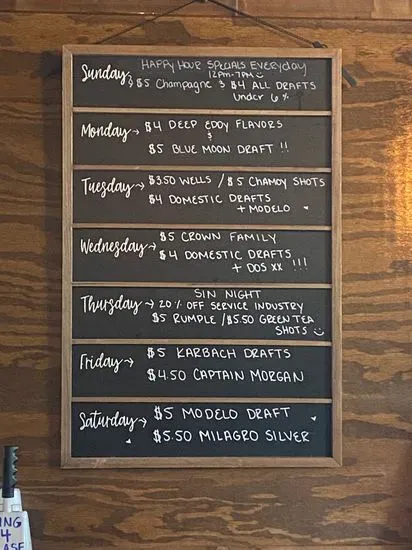 HAPPY HOUR SPECIALS EVERYDAY
12PM-7PM
Sunday → $5 Champagne & $4 ALL DRAFTS
Under 6%
Monday → $4 DEEP EDDY FLAVORS
&
$5 BLUE MOON DRAFT !!
Tuesday → $3.50 WELLS / $5 CHAMOY SHOTS
$4 DOMESTIC DRAFTS
+ MODELO
Wednesday → $5 CROWN FAMILY
$4 DOMESTIC DRAFTS
+ DOS XX !!!
SIN NIGHT
Thursday → 20% OFF SERVICE INDUSTRY
$5 RUMPLE / $5.50 GREEN TEA
SHOTS
Friday → $5 KARBACH DRAFTS
$4.50 CAPTAIN MORGAN
Saturday → $5 MODELO DRAFT
$5.50 MILAGRO SILVER
ING
4
ASE